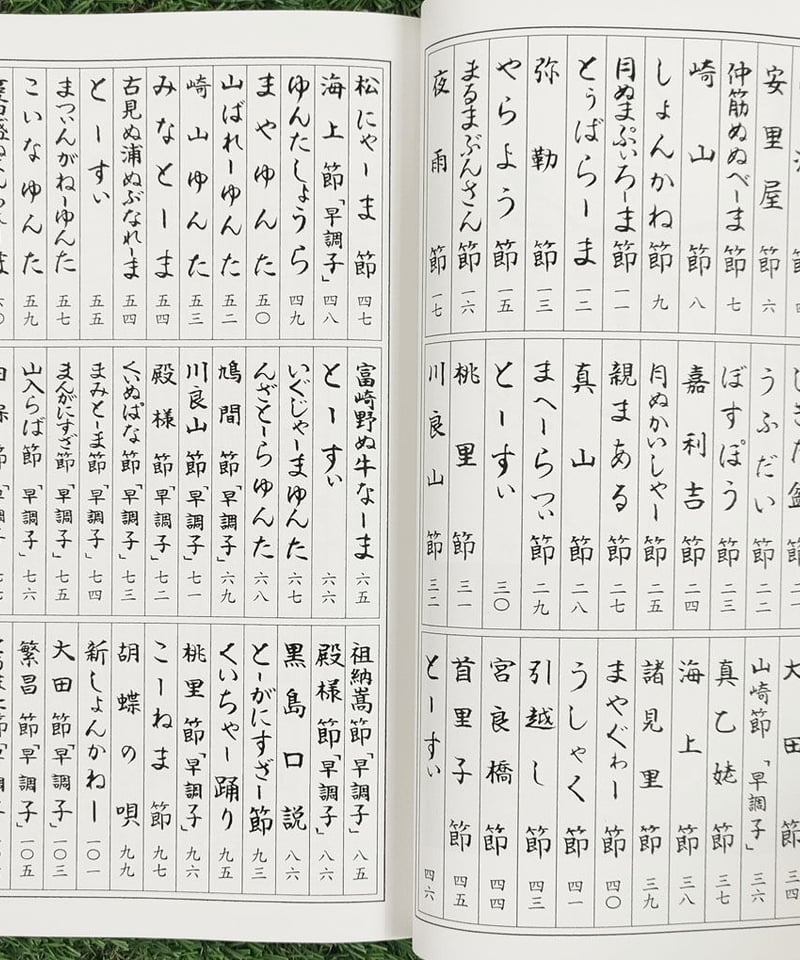 安里屋節 六
仲筋ぬぬべーま節 七
崎山節 八
しょんかね節 九
月ぬまぷぃろーま節 一一
とぅばらーま 一二
弥勒節 一三
やらよう節 一五
まるまぶんさん節 一六
夜雨節 一七
うふだい節 二二
ぼすぽう節 二三
嘉利吉節 二四
月ぬかいしゃー節 二五
親まある節 二七
真山節 二八
まへーらつぃ節 二九
とーすぃ 三〇
桃里節 三一
川良山節 三二
大田節 三四
山崎節「早調子」 三六
真乙姥節 三七
海上節 三八
諸見里節 三九
まやぐゎー節 四〇
うしゃく節 四一
引越し節 四三
宮良橋節 四四
首里子節 四五
とーすぃ 四六
松にゃーま節 四七
海上節「早調子」 四八
ゆんたしょうら 四九
まやゆんた 五〇
山ばれーゆんた 五二
崎山ゆんた 五三
みなとーま 五四
古見ぬ浦ぬぶなれーま 五四
とーすぃ 五五
まついんがねーゆんた 五七
こいなゆんた 五九
富崎野ぬ牛なーま 六五
とーすぃ 六六
いぐじゃーまゆんた 六七
んざとーらゆんた 六八
鳩間節「早調子」 六九
川良山節「早調子」 七一
殿様節「早調子」 七二
くいぬぱな節「早調子」 七三
まみとーま節「早調子」 七四
まんがにすざ節「早調子」 七五
山入らば節「早調子」 七六
祖納嵩節「早調子」 八五
殿様節「早調子」 八六
黒島口説 八六
とーがにすざー節 九三
くいちゃー踊り 九五
桃里節「早調子」 九六
こーねま節 九七
胡蝶の唄 九九
新しょんかねー 一〇一
大田節「早調子」 一〇三
繁昌節「早調子」 一〇五